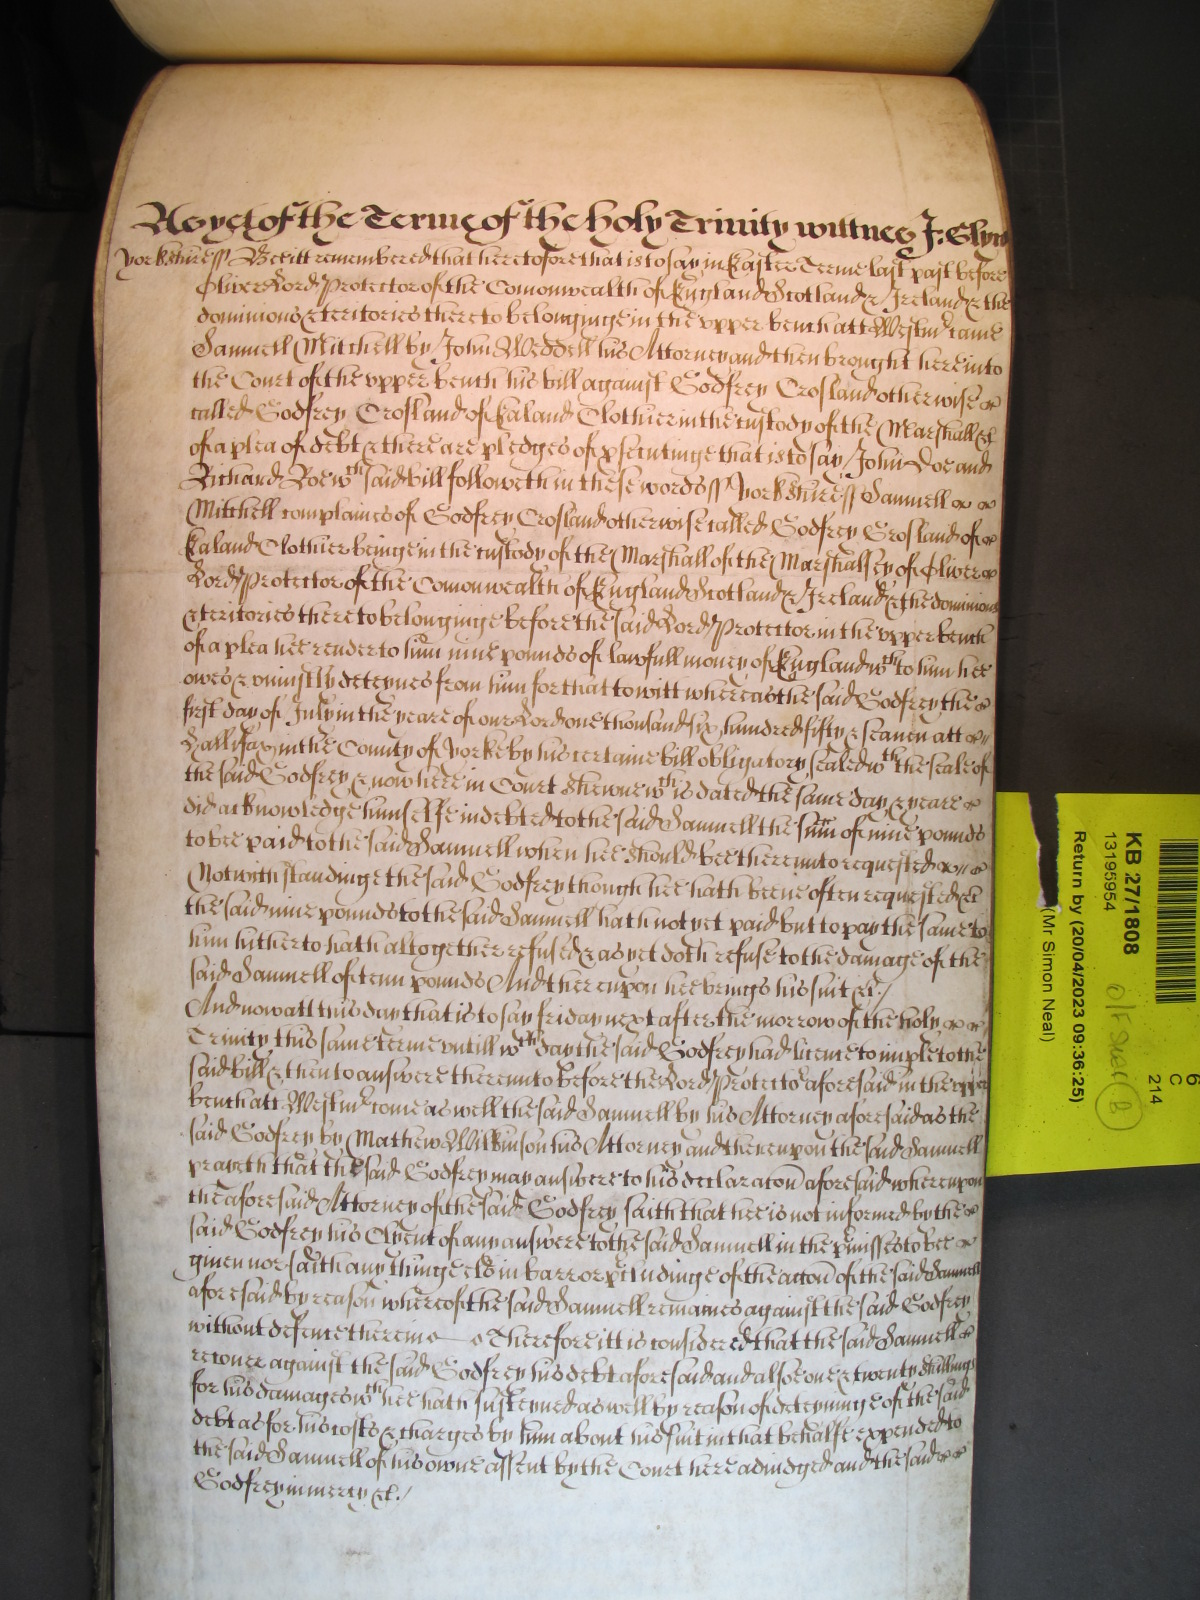 As yet of the Terme of the holy Trinity wittnes J: Glyn
Yorkshire ss Bee itt remembered that heretofore that is to say in Easter Terme last past before
Oliver Lord Protector of the Comonwealth of England Scotland & Ireland & the
dominions & teritories thereto belonginge in the upper bench att Westmr came
Samuell Mitchell by John Weddell his Attorney and then brought here into
the Court of the upper bench his bill against Godfrey Crosland otherwise
called Godfrey Crosland of Ealand Clothier in the custody of the Marshall &c
of a plea of debt & there are pledges of psecutinge that is to say John Doe and
Richard Roe wch said bill followeth in these words ss Yorkshire ss Samuell
Mitchell complaines of Godfrey Crosland otherwise called Godfrey Crosland of
Ealand Clothier beinge in the custody of the Marshall of the Marshallsey of Oliver
Lord Protector of the Comonwealth of England Scotland & Ireland & the dominions
& teritories thereto belonginge before the said Lord Protector in the upper bench
of a plea hee render to him nine pounds of lawfull money of England wch to him hee
owes & uniustly deteynes from him for that to witt whereas the said Godfrey the
first day of July in the yeare of our Lord one thousand six hundred fifty & seaven att
Hallifax in the County of Yorke by his certaine bill obligatory sealed wth the seale of
the said Godfrey & now here in Court shewne wch is dated the same day & yeare
did acknowledge himselfe indebted to the said Samuell the sum of nine pounds
to bee paid to the said Samuell when hee should bee thereunto requested
Notwithstandinge the said Godfrey though hee hath beene often requested &c
the said nine pounds to the said Samuell hath not yet paid but to pay the same to
him hitherto hath altogether refused & as yet doth refuse to the damage of the
said Samuell of tenn pounds And thereupon hee brings his suit &c./
And now att this day that is to say friday next after the morrow of the holy
Trinity this same terme untill wch day the said Godfrey had licence to imple to the
said bill & then to answere thereunto before the Lord Protector aforesaid in the upper
bench att Westmr come as well the said Samuell by his Attorney aforesaid as the
said Godfrey by Mathew Wilkinson his Attorney and thereupon the said Samuell
prayeth that the said Godfrey may answere to his declaracon aforesaid whereupon
the aforesaid Attorney of the said Godfrey saith that hee is not informed by the
said Godfrey his Clyent of any answere to the said Samuell in the pmisses to bee
given nor saith any thinge els in barr or pcludinge of the accon of the said Samuell
aforesaid by reason whereof the said Samuell remaines against the said Godfrey
without defence therein Therefore itt is considered that the said Samuell
recover against the said Godfrey his debt aforesaid and alsoe one & twenty shillings
for his damages wch hee hath susteyned as well by reason of deteyninge of the said
debt as for his costs & charges by him about his suit in that behalfe expended to
the said Samuell of his owne assent by the Court here adiudged and the said
Godfrey in mercy &c./
KB 27/1808
13195954
Return by (20/04/2023 09:36:25)
(Mr Simon Neal)
6
C
214
B